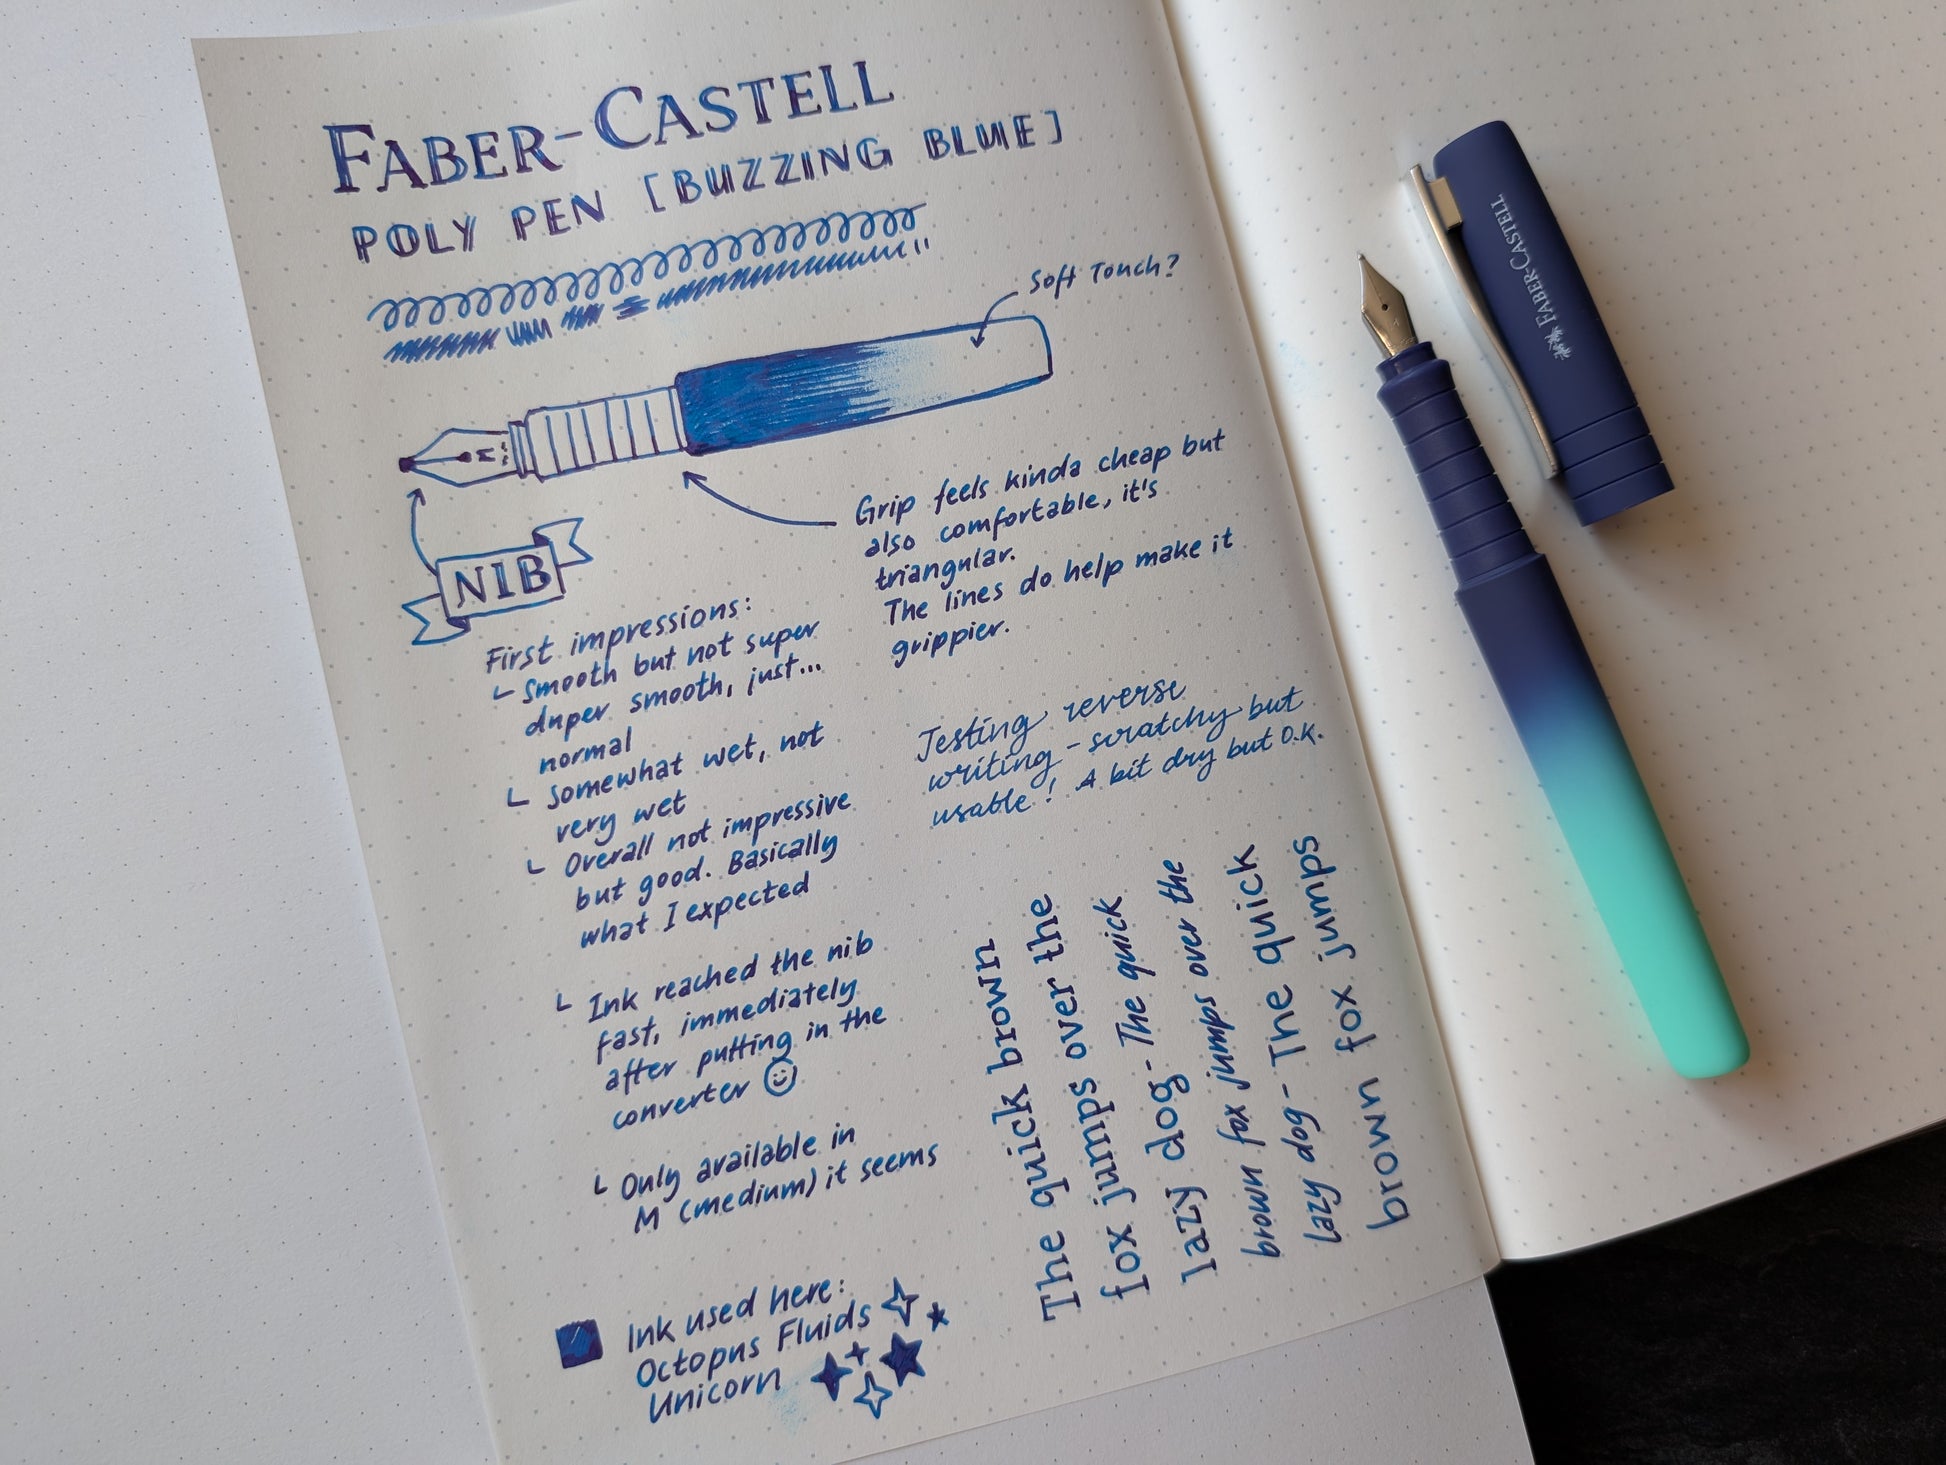 FABER-CASTELL
POLY PEN [BUZZING BLUE]
Soft Touch?
M
NIB
Grip feels kinda cheap but
also comfortable, it's
triangular.
The lines do help make it
grippier.
First impressions:
Smooth but not super
duper smooth, just...
normal
Somewhat wet, not
very wet
Overall not impressive
but good. Basically
what I expected
Ink reached the nib
fast, immediately
after putting in the
converter
Only available in
M (medium) it seems
Testing reverse
writing - scratchy but
usable! A bit dry but O.K.
The quick brown
fox jumps over the
lazy dog - The quick
brown fox jumps over the
lazy dog - The quick
brown fox jumps
Ink used here:
Octopus Fluids
Unicorn
FABER-CASTELL